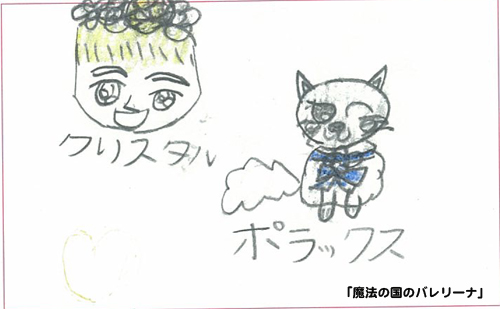 クリスタル
ポラックス
「魔法の国のバレリーナ」